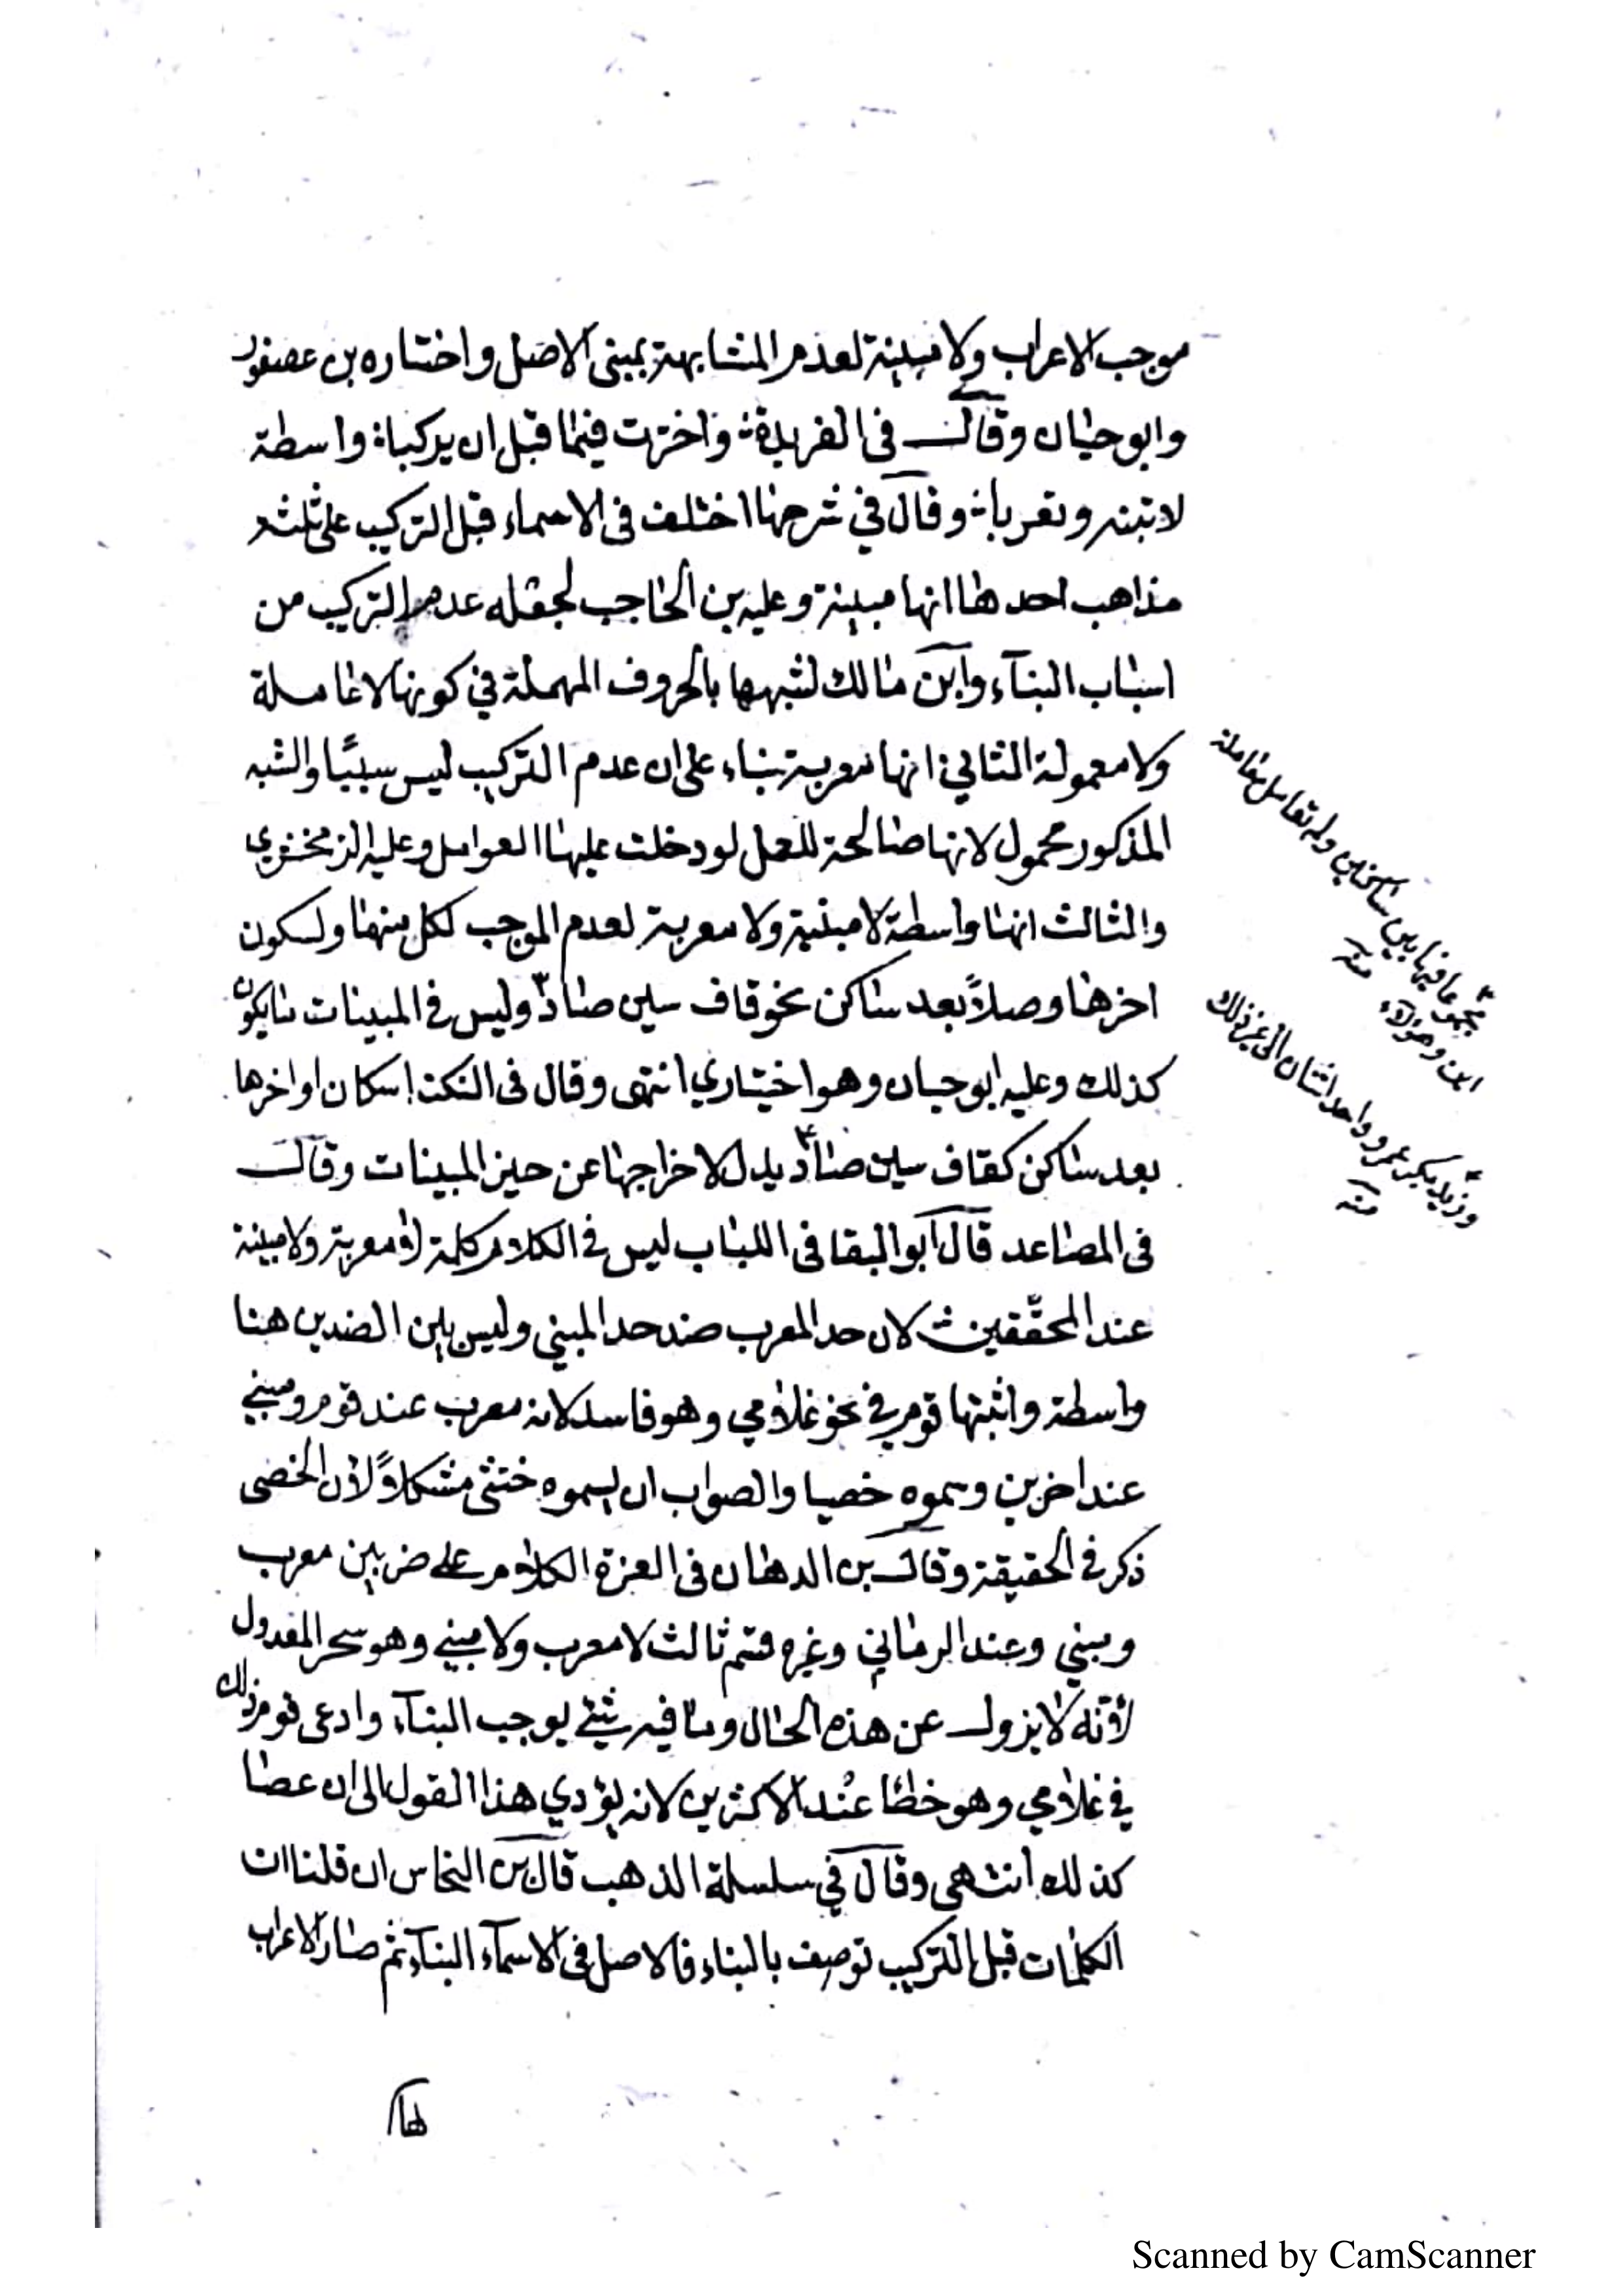 موجب الاعراب ولا مبينة لعدم المشابهة بمبنى الاصل واختاره بن عصفور
وابو حيان وقال في الفريدة واخترت فيما قبل ان يركبا واسطة
لا تبنه وتعربا وقال في شرحها اختلف فى الاسماء قبل التركيب على ثلثه
مذاهب احدها انها مبينة وعليه بن الحاجب لجعله عدم التركيب من
اسباب البنآء وابن مالك لشبهها بالحروف المهملة في كونها لا عاملة
ولا معمولة الثاني انها معربة بناء على ان عدم التركيب ليس سببًا والشبه
المذكور محمول لانها صالحة للعمل لو دخلت عليها العوامل وعليه الزمخشري
والثالث انها واسطة لا مبنية ولا معربة لعدم الموجب لكل منهما ولسكون
اخرها وصلاً بعد ساكن نحو قاف سين صاد وليس في المبينات ما يكون
كذلك وعليه ابو حيان وهو اختياري انتهى وقال فى النكت اسكان اواخرها
بعد ساكن كقاف سين صاد يدل لاخراجها عن حيز المبينات وقال
فى المصاعد قال ابو البقا فى اللباب ليس في الكلام كلمة لا معربة ولا مبينة
عند المحقّقين لان حد المعرب ضد حد المبني وليس بين الضدين هنا
واسطة واثبتها قوم في نحو غلامي وهو فاسد لانه معرب عند قوم ومبني
عند اخرين وسموه خصيا والصواب ان يسموه خنثى مشكلاً لان الخصى
ذكر في الحقيقة وقال بن الدهان فى الغرة الكلام على ضربين معرب
ومبني وعند الرماني وغيره قسم ثالث لا معرب ولا مبني وهو سحر المعدول
لانه لا يزول عن هذه الحال وما فيه شئ يوجب البنآء وادعى قوم ذلك
في غلامي وهو خطا عند الاكثرين لانه يؤدي هذا القول الى ان عصا
كذلك انتهى وقال في سلسلة الذهب قال بن النحاس ان قلنا ان
الكلمات قبل التركيب توصف بالبناء فالاصل فى الاسمآء البنآء ثم صار الاعراب
لها
مجموعا فيها بين ساكنين ولم تعامل معاملة
اين وهؤلاء منه
وزيد بكر عمرو واحد اثنان الى غير ذلك
منه
Scanned by CamScanner